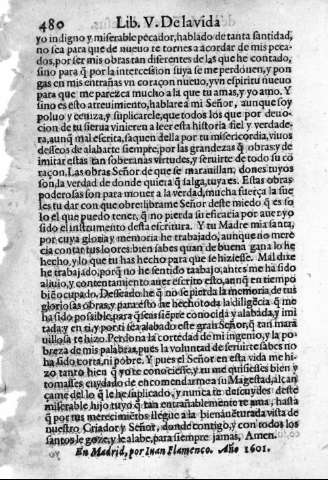 480 Lib. V. De la vida
yo indigno y miserable pecador, hablado de tanta santidad,
no sea para que de nueuo te tornes a acordar de mis peca-
dos, por ser mis obras tan diferentes de las que he contado,
sino para q̃ por la intercession suya se me perdonen, y pon
gas en mis entrañas vn coraçon nueuo, y vn espiritu nueuo
para que me parezca mucho a la que tu amas, y yo amo. Y
sino es esto atreuimiento, hablare a mi Señor, aunque soy
poluo y ceniza, y suplicarle, que todos los que por deuo-
cion de tu sierua vinieren a leer esta historia fiel y verdade-
ra, aunq̃ mal escrita, saquen della por tu misericordia, viuos
desseos de alabarte siempre, por las grandezas q̃ obras, y de
imitar estas tan soberanas virtudes, y seruirte de todo su co
raçon. Las obras Señor de que se marauillan, dones tuyos
son, la verdad de donde quiera q̃ salga, tuya es. Estas obras
poderosas son para mouer a la verdad, mucha fuerça la sue
les tu dar con que obre: librame Señor deste miedo q̃ es so
lo el que puedo tener, q̃ no pierda su eficacia por auer yo
sido el instrumento desta escritura. Y tu Madre mia santa,
por cuya gloria y memoria he trabajado, aunque no mere
cia contar tus loores: bien sabes quan de buena gana lo he
hecho, y lo que tu has hecho para que se hiziesse. Mal dixe
he trabajado, porq̃ no he sentido trabajo, antes me ha sido
aliuio, y contentamiento auer escrito esto, aunq̃ en tiempo
biẽ ocupado. Deseado he q̃ no se pierda la memoria de tus
gloriosas obras, y para esto he hecho toda la diligẽcia q̃ me
ha sido possible, para q̃ seas siẽpre conocida y alabada, y imi
tada, y en ti, y por ti sea alabado este gran Señor, q̃ tan mara
uillosa te hizo. Perdona la cortedad de mi ingenio, y la po
breza de mis palabras, pues la voluntad de seruirte sabes no
ha sido corta, ni pobre. Y pues el Señor en esta vida me hi-
zo tanto bien q̃ yo te conociesse, y tu me quisiesses bien y
tomasses cuydado de encomendarme a su Magestad, alcan
çame del lo q̃ le he suplicado, y nunca te descuydes deste
miserable hijo tuyo q̃ tan entrañablemente te ama, hasta
q̃ por tus merecimiẽtos llegue a la bienauenturada vista de
nuestro Criador y Señor, donde contigo, y con todos los
santos le goze, y le alabe, para siempre jamas, Amen.
En Madrid, por Iuan Flamenco. Año 1601.